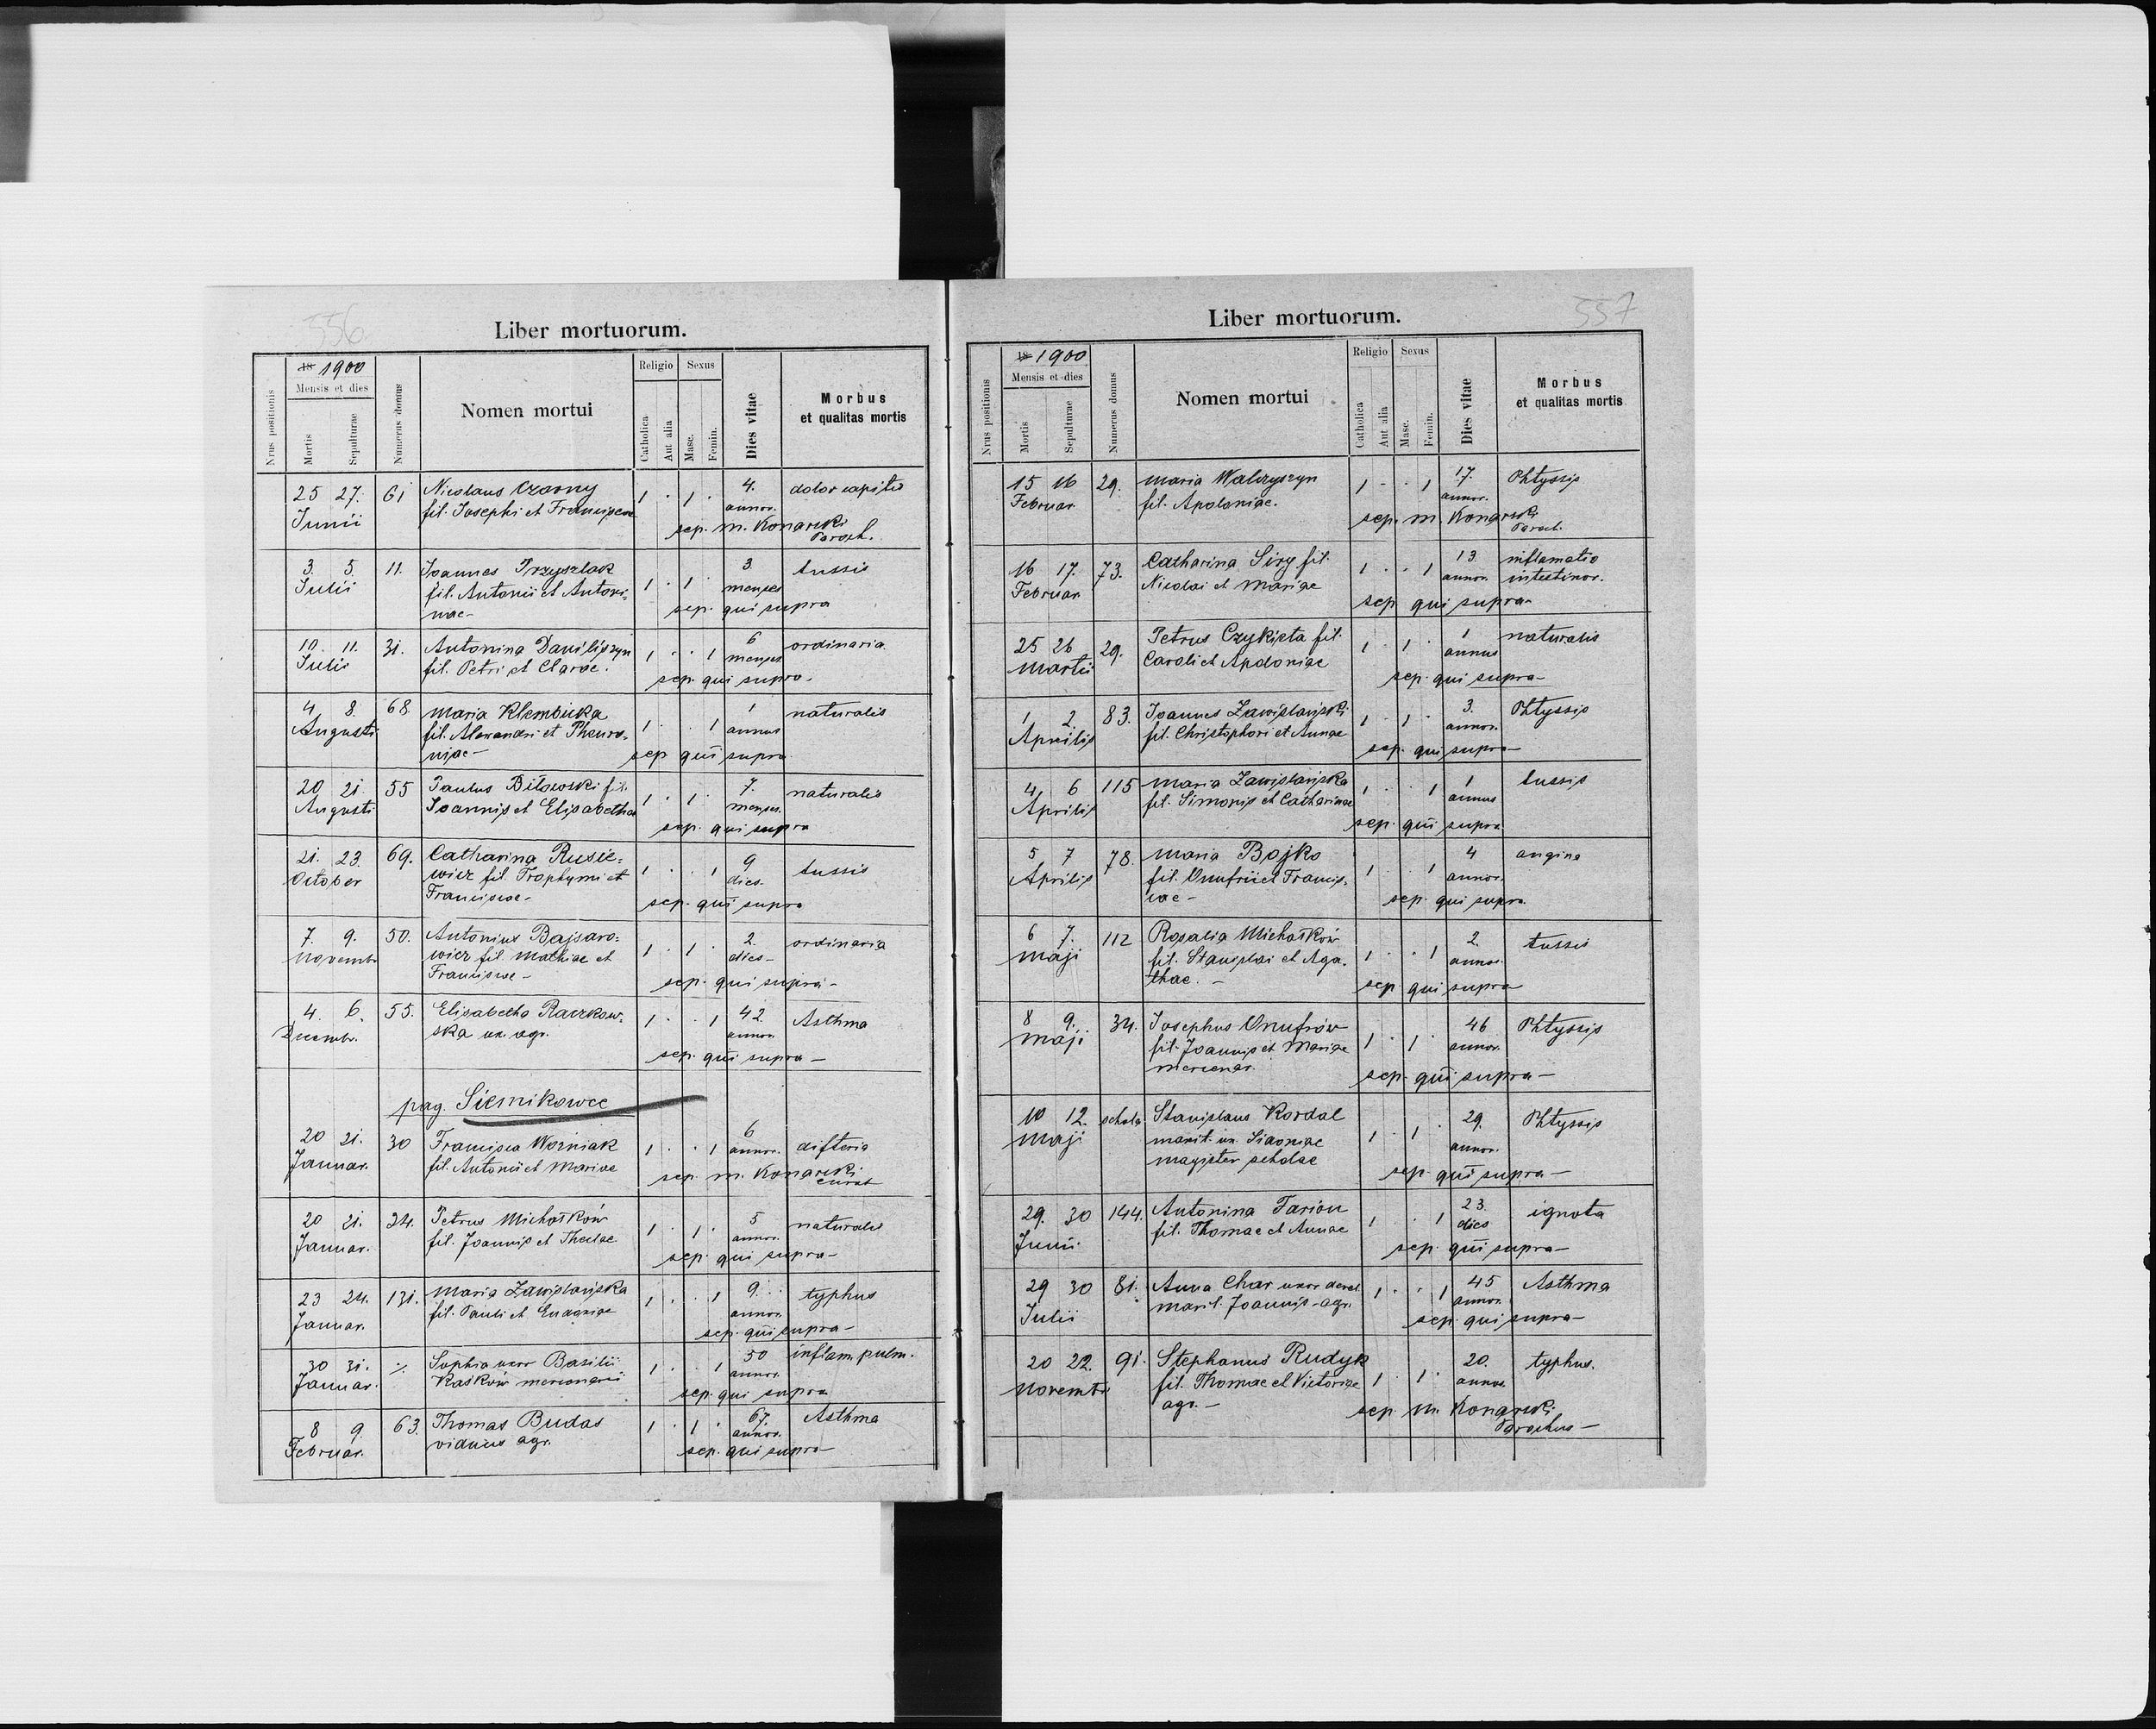 556
Liber mortuorum.
Nrus positionis
18 1900
Mensis et dies
Mortis
Sepulturae
Numerus domus
Nomen mortui
Religio
Catholica
Aut alia
Sexus
Masc.
Femin.
Dies vitae
Morbus
et qualitas mortis
25 27. 61 Nicolaus Czarny 1 . 1 . 4. dolor capitis
Junii fil. Josephi et Franciscae annor.
sep. M. Konarski
Paroch.
3. 5. 11. Joannes Przyszlak 1 . 1 . 3. tussis
Julii fil. Antonii et Antoni= menses
nae- sep. qui supra
10. 11. 31. Antonina Daniliszyn 1 . . 1 6 ordinaria
Julii fil. Petri et Clarae. menses
sep. qui supra.
4. 8. 68 Maria Klembicka 1 . . 1 1 naturalis
Augusti fil. Alexandri et annus
sep. qui supra
20 21. 55 Paulus Bilowski fil. 1 . 1 . 7. naturalis
Augusti Joannis et Elisabethae menses.
sep. qui supra
21. 23. 69. Catharina Rusie= 1 . . 1 9 tussis
October wicz fil. Trophymi et dies.
Franciscae- sep. qui supra
7. 9. 50. Antonius Bajsaro= 1 . 1 . 2. ordinaria
Novembr. wicz fil. Mathiae et dies-
Franciscae- sep. qui supra-
4. 6. 55. Elisabetha Raczkow= 1 . . 1 42. Asthma
Decembr. ska ux. agr. annor.
sep. qui supra-
pag. Siemikowce
20 21. 30 Francisca Woźniak 1 . . 1 6 difteria
Januar. fil. Antonii et Mariae annor.
sep. M. Konarski
curat
20 21. 24. Petrus Michałków 1 . 1 . 5 naturalis
Januar. fil. Joannis et Theclae annor.
sep. qui supra-
23 24. 131. Maria Zawislańska 1 . . 1 9. typhus
Januar. fil. Pauli et annor.
sep. qui supra-
30 31. ·/. Sophia uxor Basilii 1 . . 1 50 inflam. pulm.
Januar. Kaśków mercenarii annor.
sep. qui supra
8 9. 63. Thomas Budas 1 . 1 . 67. Asthma
Februar. viduus agr. annor.
sep. qui supra-
557
Liber mortuorum.
Nrus positionis
18 1900
Mensis et dies
Mortis
Sepulturae
Numerus domus
Nomen mortui
Religio
Catholica
Aut alia
Sexus
Masc.
Femin.
Dies vitae
Morbus
et qualitas mortis
15 16 29. Maria Walczyszyn 1 . . 1 17. Phtyssis
Februar. fil. Apoloniae. annor.
sep. M. Konarski
Paroch.
16 17. 73. Catharina Siry fil. 1 . . 1 13. inflamatio
Februar. Nicolai et Mariae annor. intestinor.
sep. qui supra-
25 26 29. Petrus Czykieta fil. 1 . 1 . 1 naturalis
Martii Caroli et Apoloniae annus
sep. qui supra-
1 2. 83. Joannes Zawislański 1 . 1 . 3. Phtyssis
Aprilis fil. Christophori et Annae annor.
sep. qui supra-
4 6 115 Maria Zawislańska 1 . . 1 1 tussis
Aprilis fil. Simonis et Catharinae annus
sep. qui supra
5 7 78. Maria Bojko 1 . . 1 4 angina
Aprilis fil. Onufrii et Francis= annor.
cae- sep. qui supra.
6 7. 112 Rosalia Michałków 1 . . 1 2. tussis
Maji fil. Stanislai et Aga= annor.
thae.- sep. qui supra
8 9. 34. Josephus Onufrów 1 . 1 . 46 Phtyssis
Maji fil. Joannis et Mariae annor.
mercenar. sep. qui supra-
10 12. schola Stanislaus Kordal 1 . 1 . 29. Phtyssis
Maji marit. ux. annor.
magister scholae
sep. qui supra-
29. 30 144. Antonina Farion 1 . . 1 23. ignota
Junii fil. Thomae et Annae dies
sep. qui supra-
29 30 81. Anna Char uxor derel. 1 . . 1 45 Asthma
Julii marit. Joannis-agr. annor.
sep. qui supra-
20 22. 91. Stephanus Rudyk 1 . 1 . 20. typhus.
Novembr. fil. Thomae et Victoriae annor.
agr.- sep. M. Konarski
Parochus-